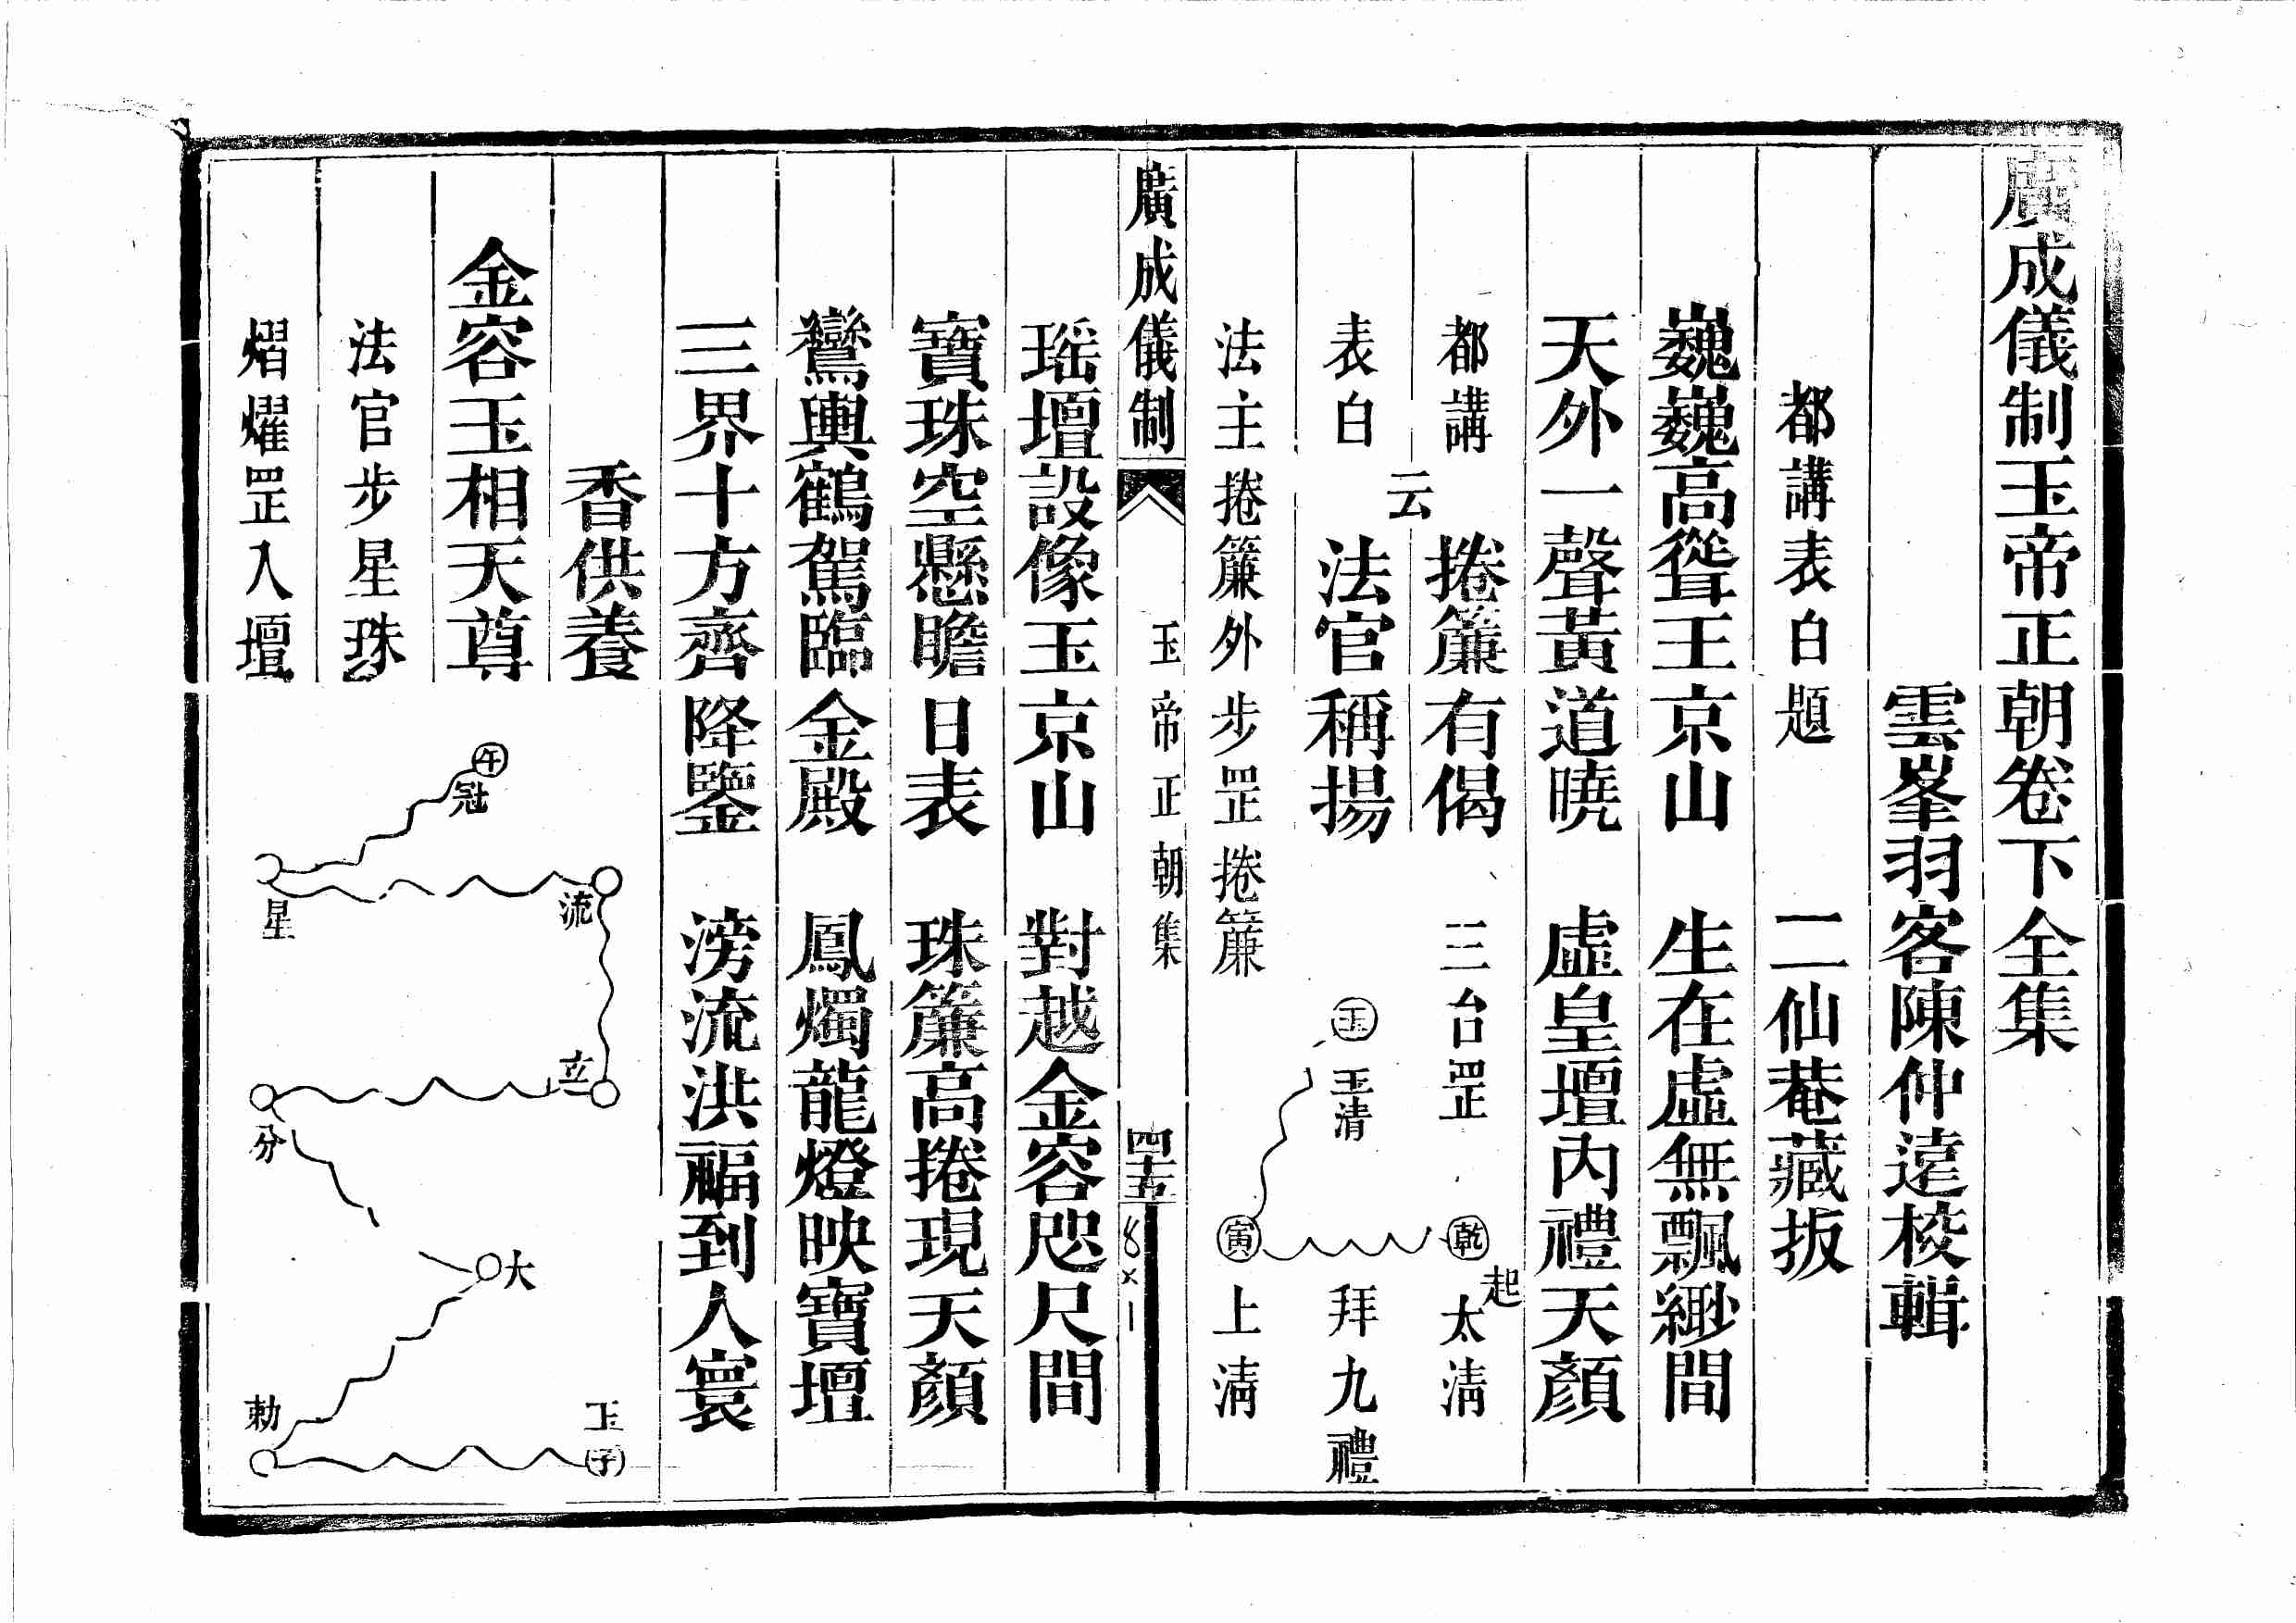 廣成儀制玉帝正朝卷下全集
雲峯羽客陳仲遠校輯
都講表白題 二仙菴藏板
巍巍高聳玉京山 生在虛無飄緲間
天外一聲黃道曉 虛皇壇內禮天顏
都講 捲簾有偈 三台罡 乾 起 太清
云
表白 法官稱揚 玉 玉清 拜九禮
法主捲簾外步罡捲簾 寅 上清
廣成儀制 玉帝正朝集 四十五 8×1
瑶壇設像玉京山 對越金容咫尺間
寶珠空懸瞻日表 珠簾高捲現天顏
鸞輿鶴駕臨金殿 鳳燭龍燈映寶壇
三界十方齊降鑒 滂流洪福到人寰
香供養
金容玉相天尊
法官步星珠
熠燿罡入壇
午 冠
星
流
立
分
大
勅
玉 子